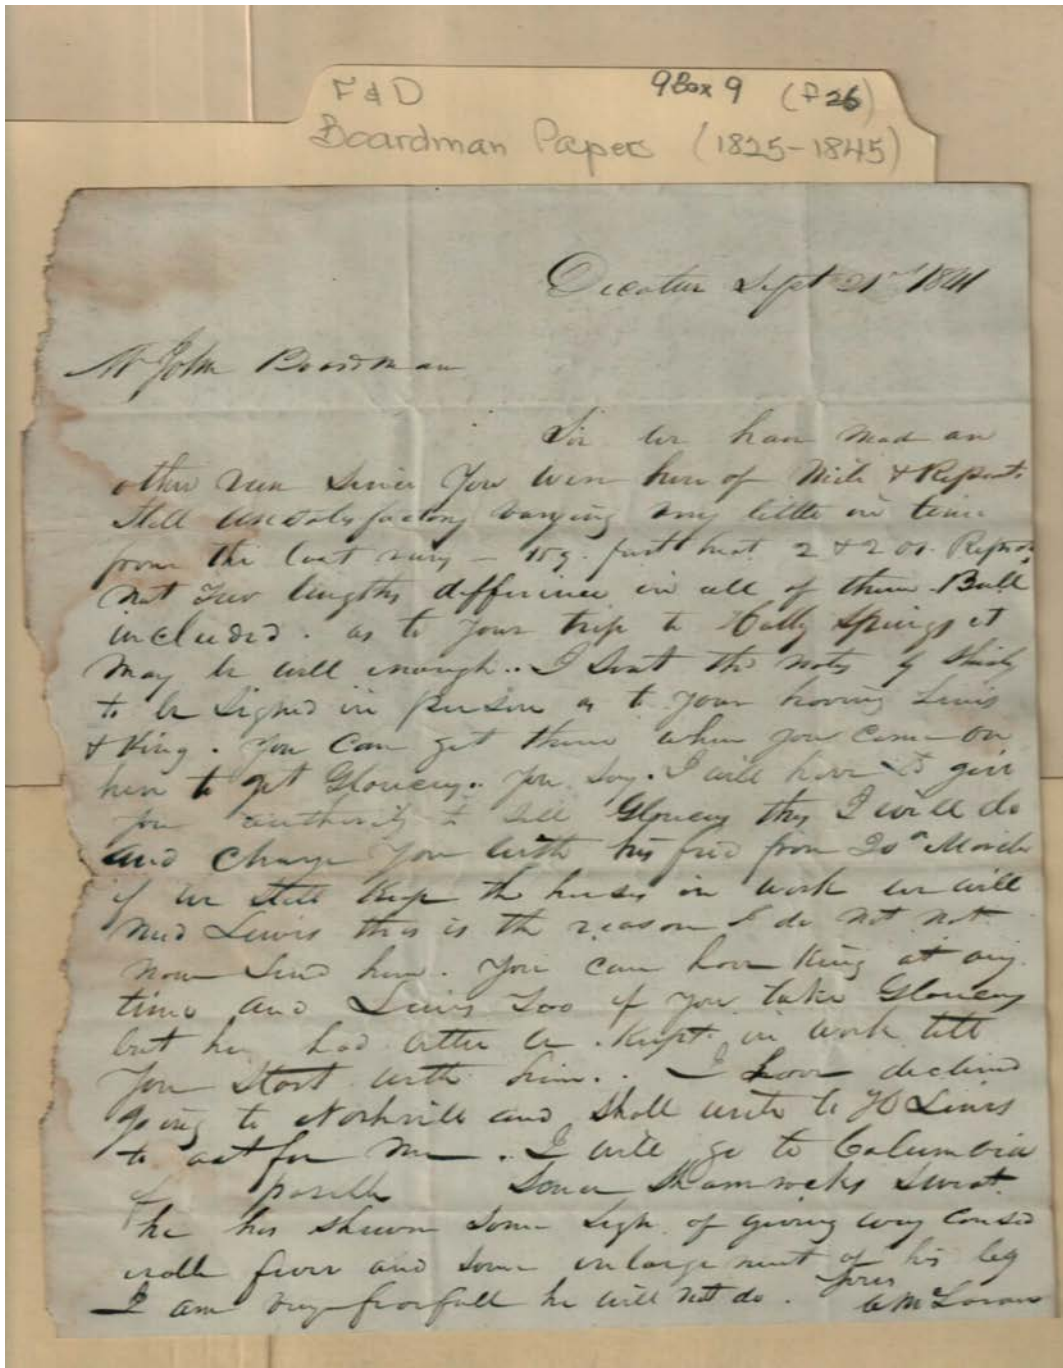 F & D 9Box 9 (F26)
Boardman Paper (1825-1845)
Decatur Sept 21st 1841
Mr John Boardman
Sir we have mad an
other run since you were here of Mile & Repeat
still unsatisfactory varying very little in time
from the last run first heat 2 & 2
not two lengths difference in all of them Bull
included. as to your trip to Holly Springs it
may be well enough.. I sent the note
to be signed in person as to your having Lewis
& King. You can get them when you come on
here to get Glouceng. you say. I will have to give
you authority to sell Glouceng this I will do
and charge you with his feed from 20th March
if we still keep the horses in work we will
need Lewis this is the reason I do not not
now send him. You can have King at any
time and Lewis Too if you take Glouceng
but he had better be kept in work till
you start with him.. I have declined
going to Nashville and shall write to H Lewis
to act for me. I will go to Columbia
if possible Shamrocks sweat
he has shewn some sign of giving way consid
erable fever and some enlargement of his leg
I am very fearfull he will not do. Yours